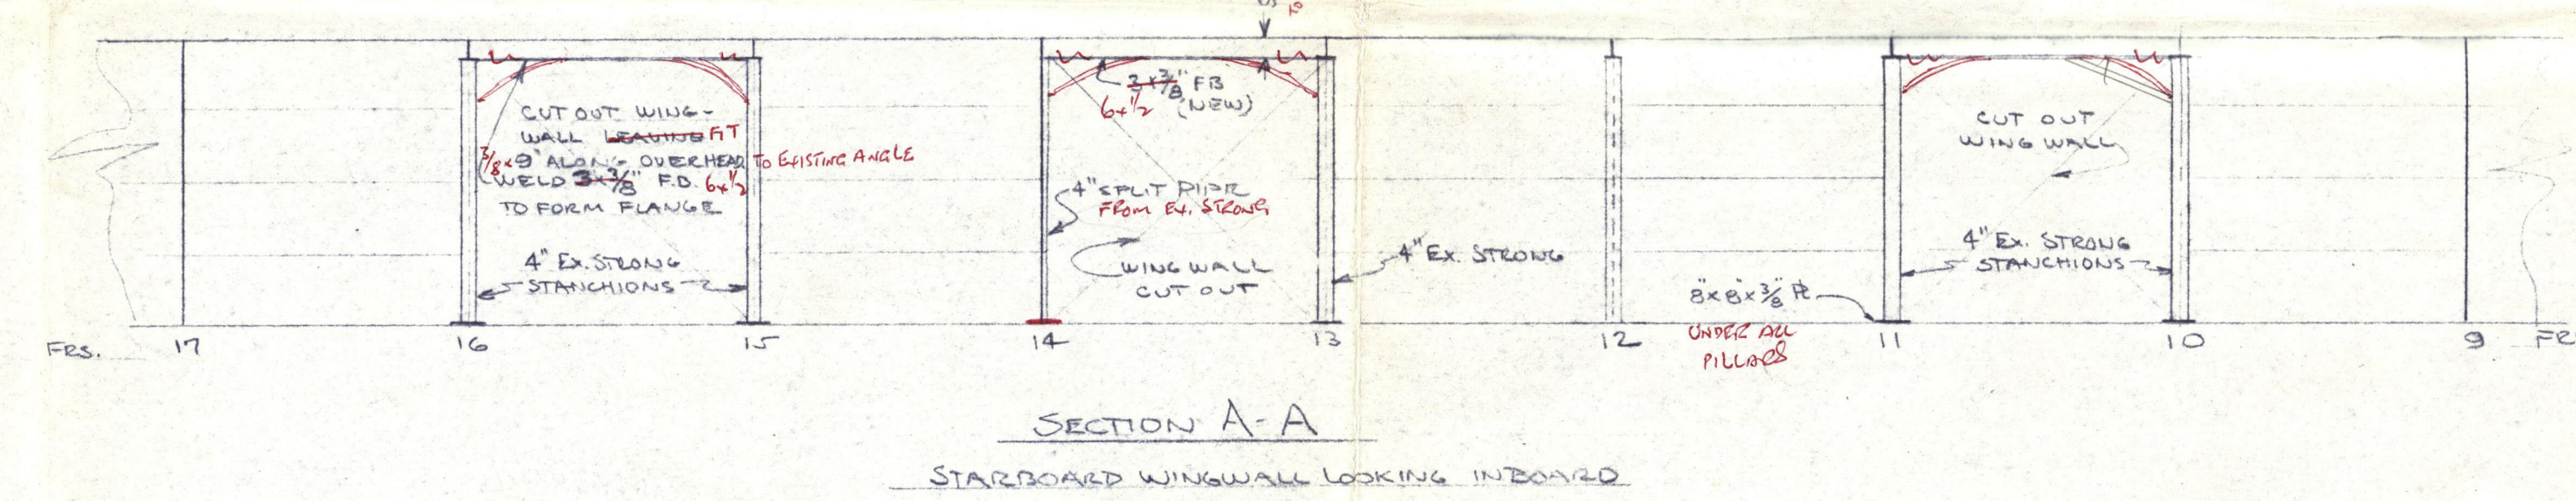 TO
CUT OUT WING-
WALL LEAVING FIT
3/8 x 9" ALONG OVERHEAD TO EXISTING ANGLE
WELD 3x3/8" F.B. 6x1/2
TO FORM FLANGE
4" EX. STRONG
STANCHIONS
3x3/8" FB
6x1/2 (NEW)
4" SPLIT PIPE
FROM EX. STRONG
WING WALL
CUT OUT
4" EX. STRONG
8"x8"x3/8" PL
UNDER ALL
PILLARS
CUT OUT
WING WALL
4" EX. STRONG
STANCHIONS
FRS. 17 16 15 14 13 12 11 10 9 FR
SECTION A-A
STARBOARD WINGWALL LOOKING INBOARD